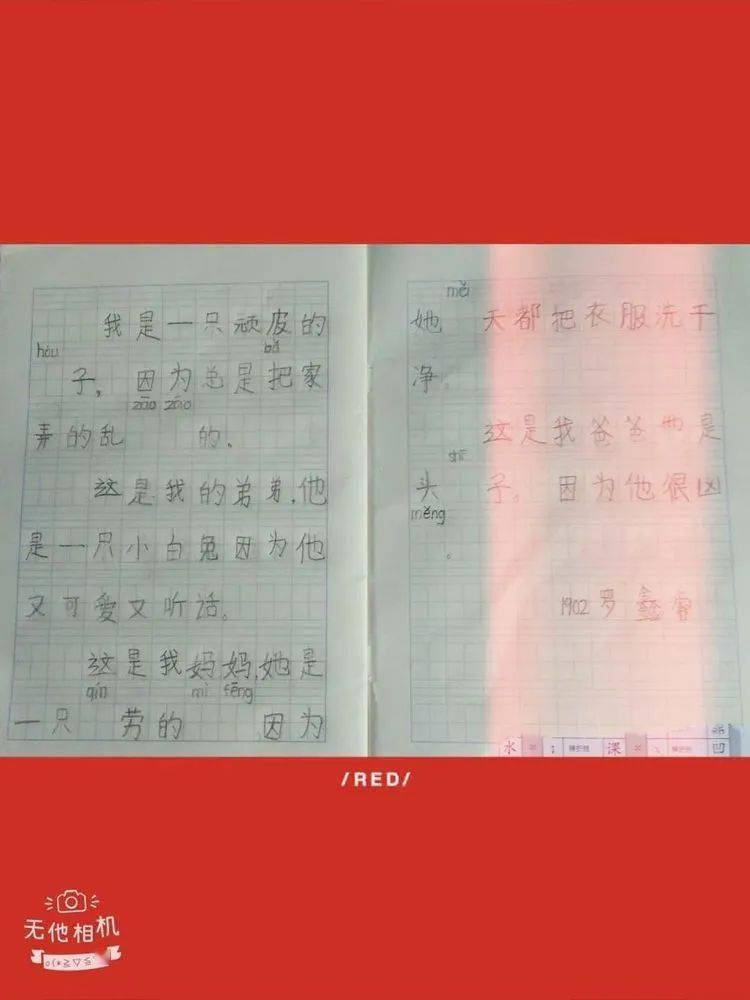 我是一只顽皮的
hóu bǎ
子，因为总是把家
zāo zāo
弄的乱 的。
这是我的弟弟，他
是一只小白兔因为他
又可爱又听话。
这是我妈妈，她是
qín mì fēng
一只 劳的 因为
měi
她 天都把衣服洗干
净。
这是我爸爸他是
shī
头 子。因为他很凶
měng
。
1902 罗
水 课
凹
/RED/
无他相机